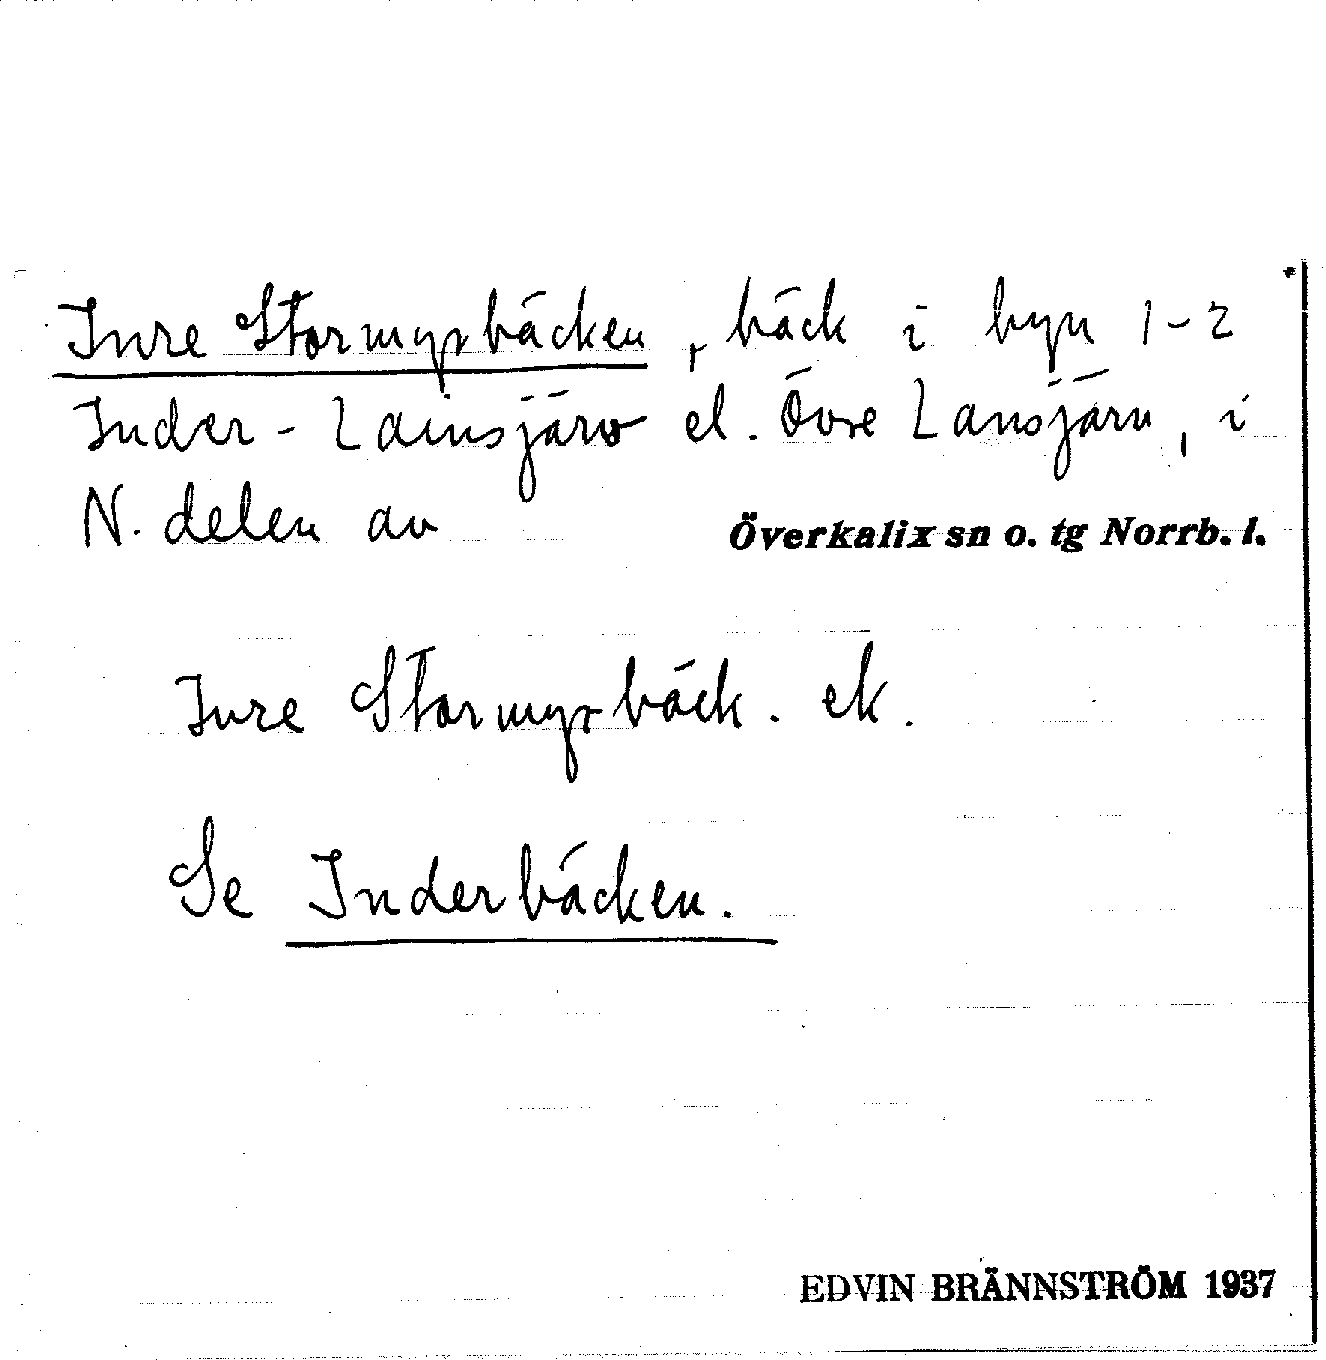 Inre Stormyrbäcken, bäck i byn 1-2
Inder-Lainsjärv el. Övre Lansjärv, i
N. delen av Överkalix sn o. tg Norrb. l.
Inre Stormyrbäck. ek.
Se Inderbäcken.
EDVIN BRÄNNSTRÖM 1937